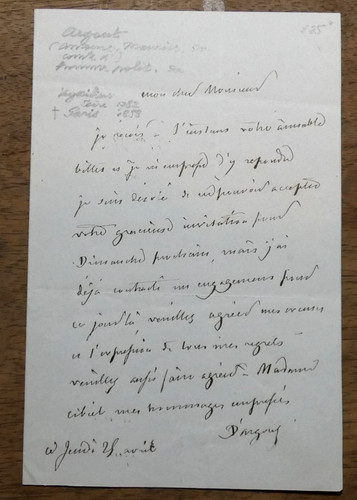 Argout
(Antoine, Maurice, 
comte d')
homme polit.
Isère 1782
† Paris 1858
25
mon cher Monsieur
je reçois à l'instant votre aimable
billet et je m'empresse d'y repondre
je suis desolé de ne pouvoir accepter
votre gracieuse invitation pour
Dimanche prochain, mais j'ai
déjà contracté un engagement pour
ce jour là, veuillez agreer mes excuses
et l'expression de tous mes regrets
veuillez aussi faire agreer à Madame
mes hommages empressés
D'argout
ce Jeudi avril